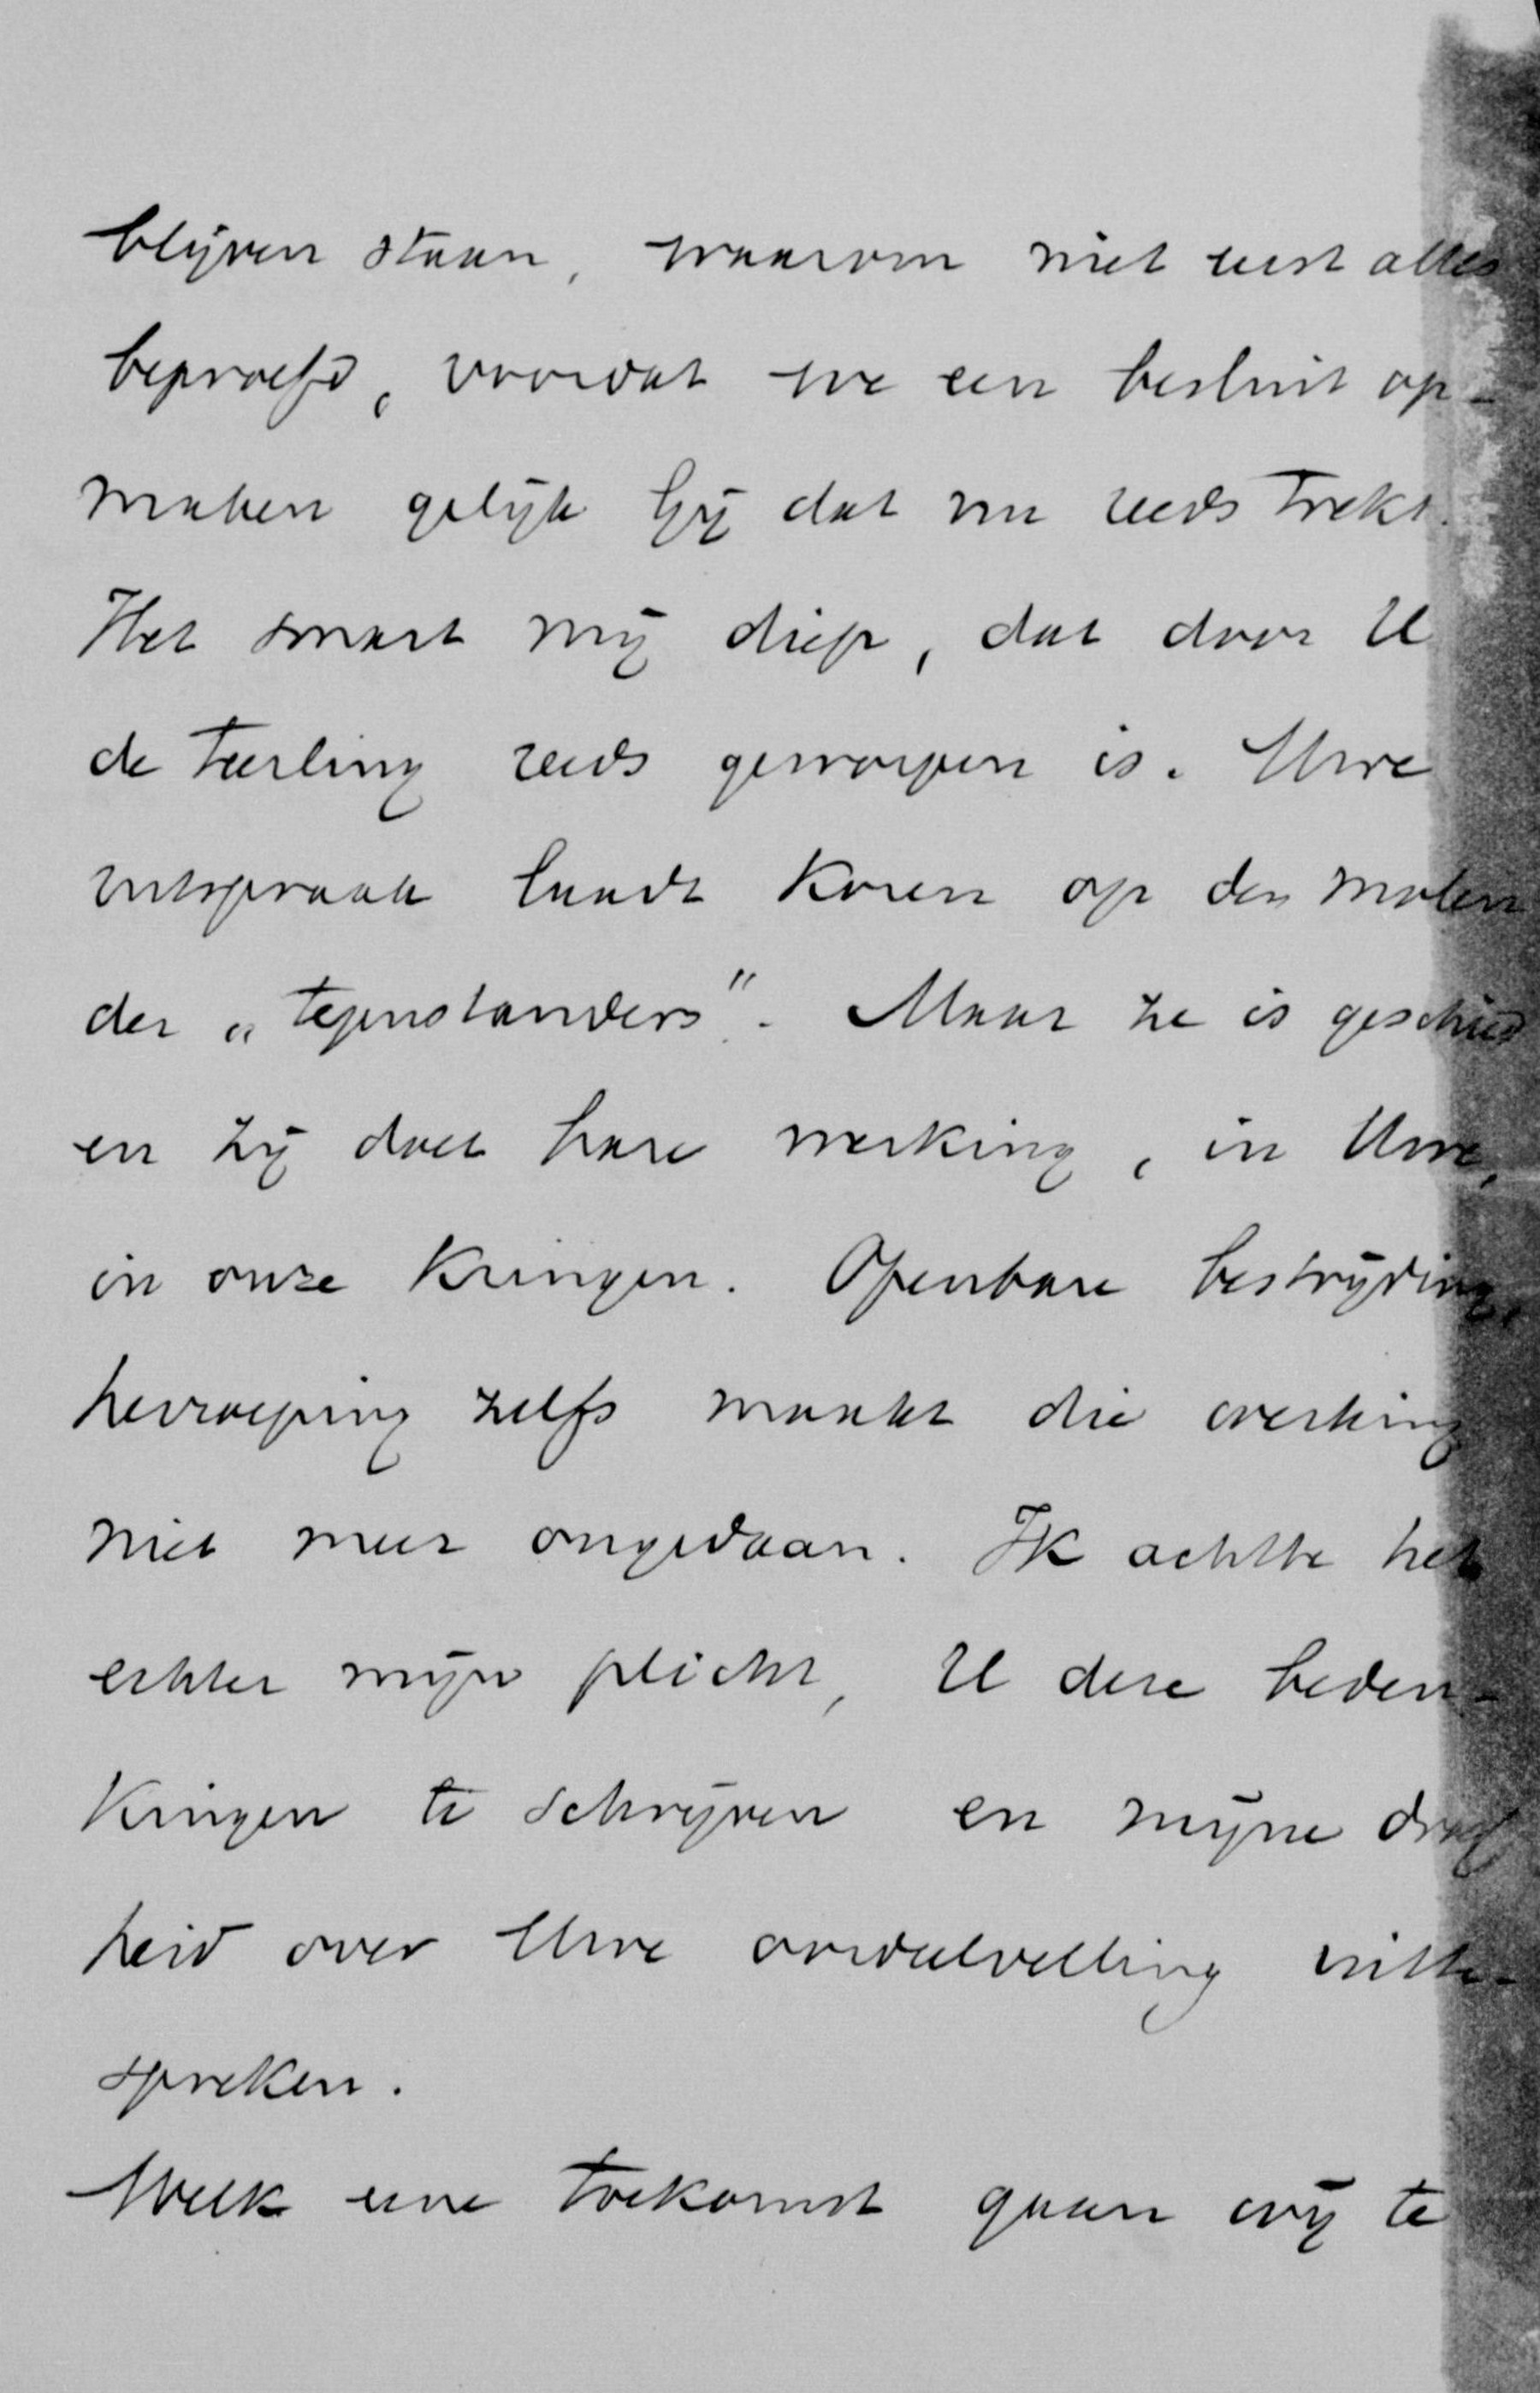 blijven staan, waarom niet eerst alles
beproefd, voordat we een besluit op-
maken gelijk Gij dat nu reeds trekt.
Het smart mij diep, dat door U
de teerling reeds geworpen is. Uwe
uitspraak laadt koren op den molen
der „tegenstanders". Maar ze is geschied
en zij doet hare werking, in Uwe,
in onze kringen. Openbare bestrijding,
herroeping zelfs maakt die werking
niet meer ongedaan. Ik achtte het
echter mijn plicht, U deze beden-
kingen te schrijven en mijne droef
heid over Uwe oordeelvelling uitte-
spreken.
Welk eene toekomst gaan wij te